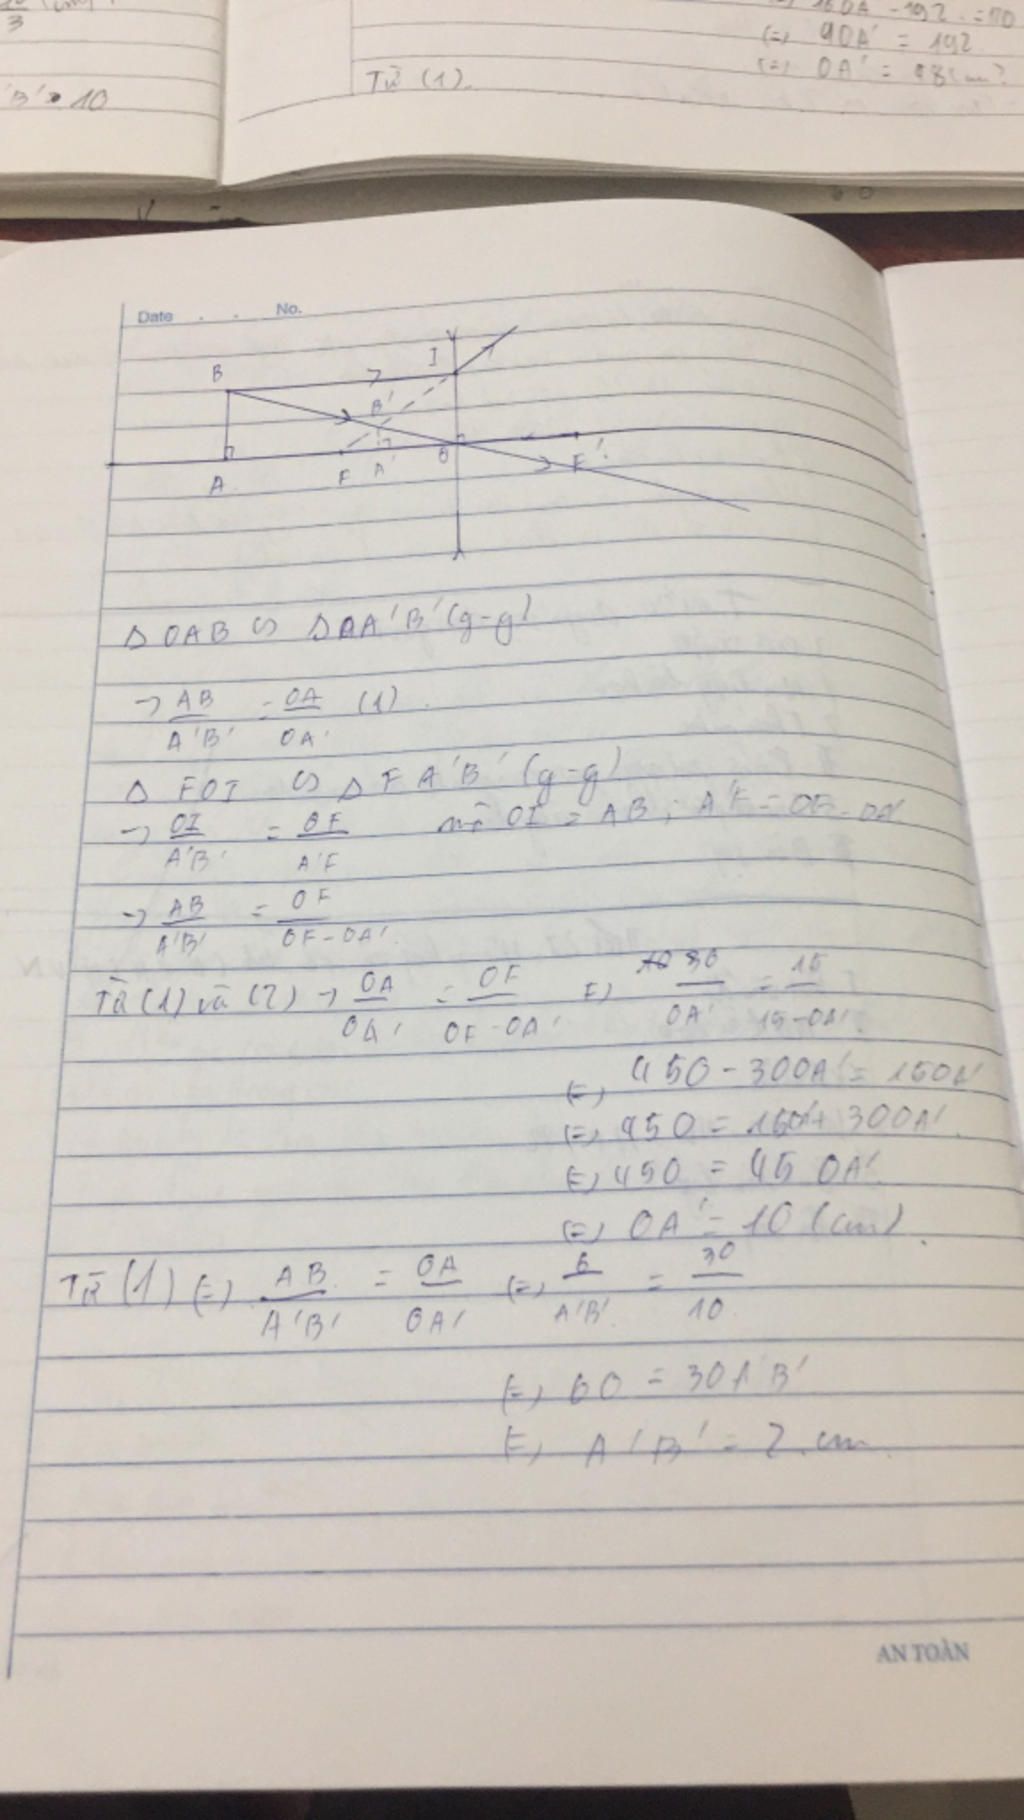 3
'B' 10
= 192
(=) 9OA' = 192
(=) OA' =
Từ (1).
Date . . No.
B I
B'
A F A' O F'
Δ OAB ∽ Δ OA'B' (g-g)
→ AB/A'B' = OA/OA' (1)
Δ FOI ∽ Δ FA'B' (g-g)
→ OI/A'B' = OF/A'F mà OI = AB ; A'F = OF - OA'
→ AB/A'B' = OF/OF-OA'
Từ (1) và (2) → OA/OA' = OF/OF-OA' (=) 30/OA' = 15/15-OA'
(=) 450 - 30OA' = 15OA'
(=) 450 = 15OA' + 30OA'
(=) 450 = 45 OA'
(=) OA' = 10 (cm)
Từ (1) (=) AB/A'B' = OA/OA' (=) 6/A'B' = 30/10
(=) 60 = 30A'B'
(=) A'B' = 2 cm
AN TOÀN